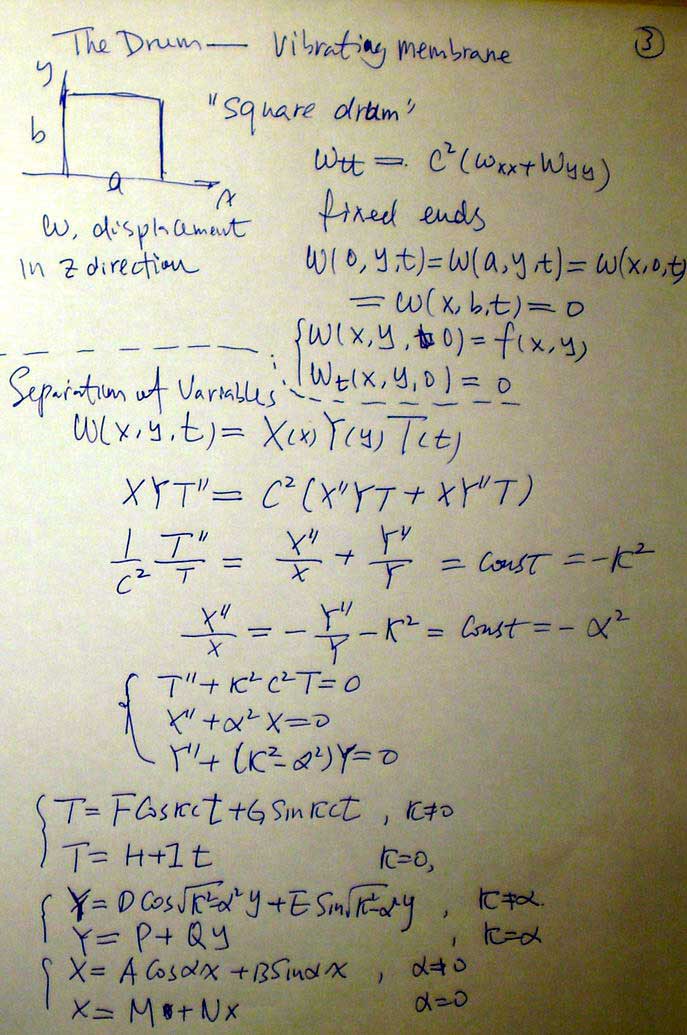 The Drum — Vibrating membrane
③
y
b
a
x
"square drum"
w, displacement
in z direction
Wtt = c²(Wxx + Wyy)
fixed ends
W(0,y,t) = W(a,y,t) = W(x,0,t)
= W(x,b,t) = 0
{ W(x,y,0) = f(x,y)
Wt(x,y,0) = 0
Separation of Variables
W(x,y,t) = X(x) Y(y) T(t)
XYT" = c²(X"YT + XY"T)
1/c² T"/T = X"/X + Y"/Y = const = -K²
X"/X = - Y"/Y - K² = Const = - α²
{ T" + K²c²T = 0
X" + α²X = 0
Y" + (K² - α²)Y = 0
{ T = F Cos Kct + G Sin Kct , K≠0
T = H + I t K=0,
{ Y = D Cos √K²-α² y + E Sin √K²-α² y , K≠α.
Y = P + Q y , K=α
{ X = A Cos αx + B Sin αx , α≠0
X = M + Nx α=0